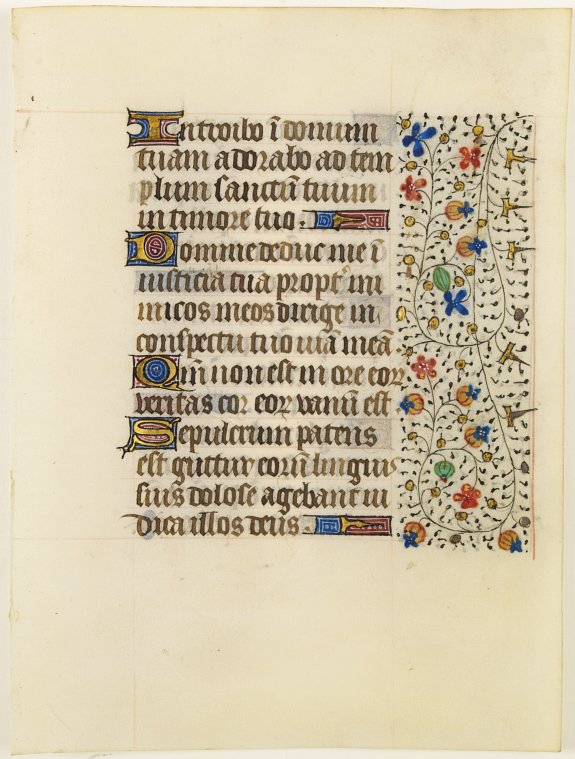 Introibo ĩ domum
tuam adorabo ad tem
plum sanctũ tuum
in timore tuo.
Domine deduc me ĩ
iusticia tua propt᾽ ini
micos meos dirige in
conspectu tuo uiã meã
Qm̃ non est in ore eoꝝ
veritas cor eoꝝ vanũ est
Sepulcrum patens
est guttur eorũ linguis
suis dolose agebant iu
dica illos deus.